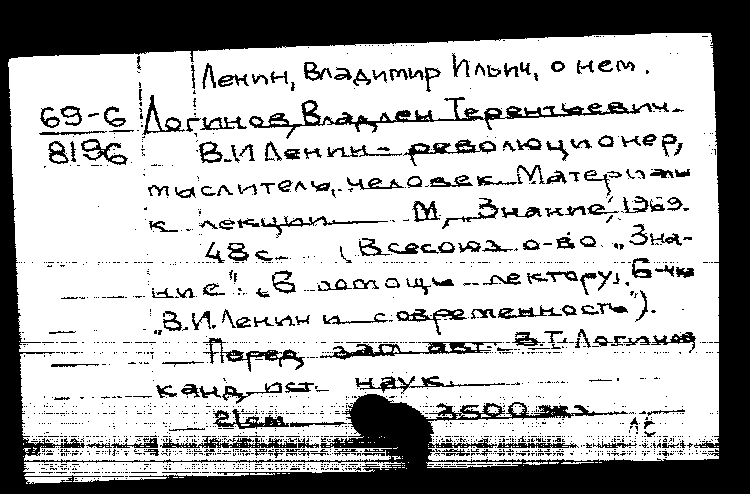 Ленин, Владимир Ильич, о нем.
69-6 Логинов, Владлен Терентьевич.
8196 В.И Ленин - революционер,
мыслитель, человек. Материалы
к лекции М, "Знание", 1969.
48 с. (Всесоюз о-во "Зна-
ние". "В помощь лектору.
"В.И. Ленин и современность").
Перед загл авт: В.Т. Логинов,
канд. ист. наук.
21 см 3500 экз